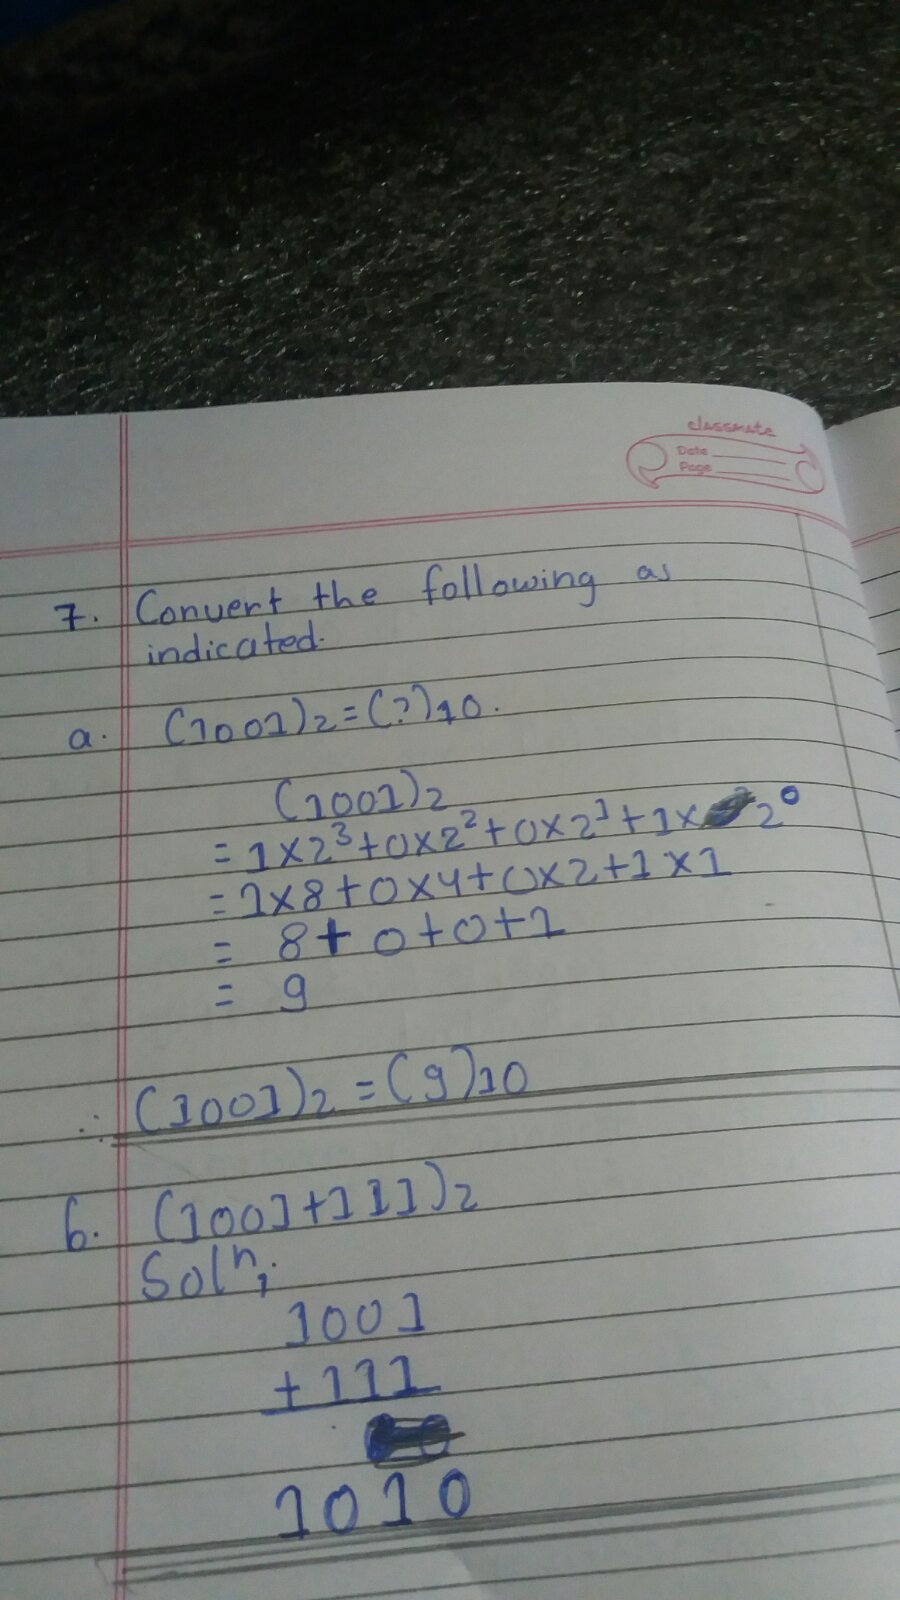 classmate
Date
Page
7. Convert the following as
indicated.
a. (1001)2=(?)10.
(1001)2
=1×2³+0×2²+0×2¹+1× 2⁰
=1×8+0×4+0×2+1×1
= 8+0+0+1
= 9
∴ (1001)2=(9)10
b. (1001+111)2
Solⁿ;
1001
+111
1010